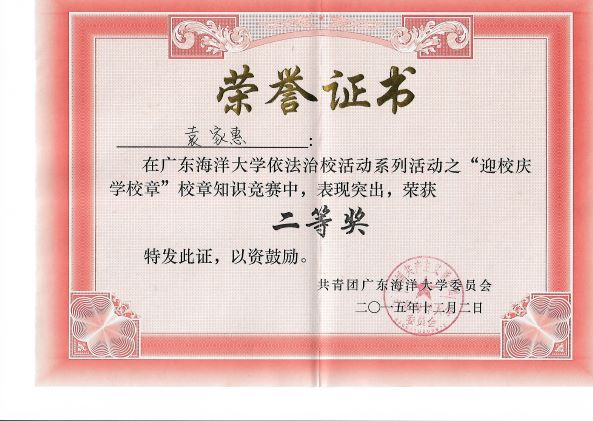 荣誉证书
袁家惠：
在广东海洋大学依法治校活动系列活动之“迎校庆
学校章”校章知识竞赛中，表现突出，荣获
二等奖
特发此证，以资鼓励。
共青团广东海洋大学委员会
二〇一五年十二月二日
委员会